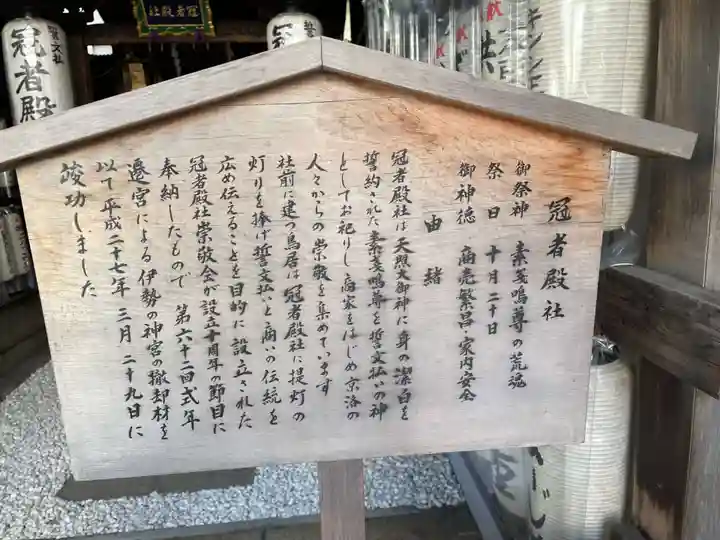 冠者殿社
御祭神 素戔嗚尊の荒魂
祭日 十月二十日
御神徳 商売繁昌・家内安全
由緒
冠者殿社は天照大御神に身の潔白を
誓約された素戔嗚尊を誓文払いの神
としてお祀りし商家をはじめ京洛の
人々からの崇敬を集めています
社前に建つ鳥居は冠者殿社に提灯の
灯りを捧げ誓文払いと商いの伝統を
広め伝えることを目的に設立された
冠者殿社崇敬会が設立十周年の節目に
奉納したもので 第六十二回式年
遷宮による伊勢の神宮の撤却材を
以て平成二十七年三月二十九日に
竣功しました
冠者殿社
冠者殿